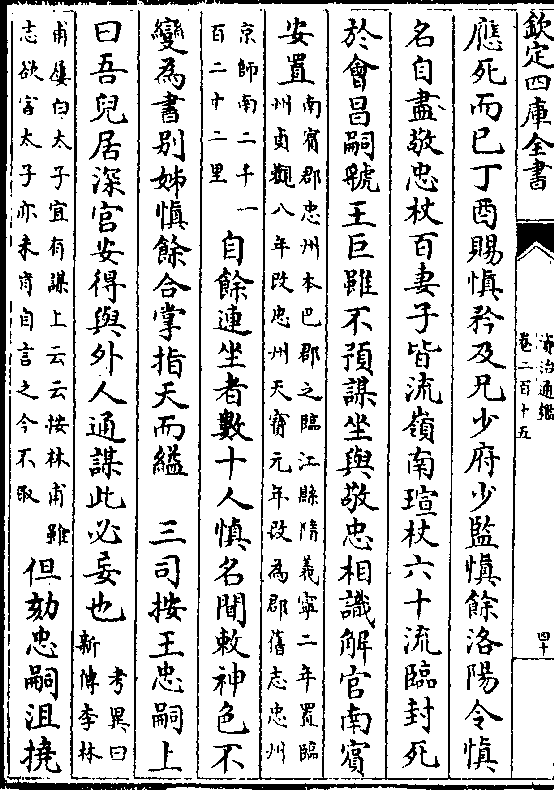 欽定四庫全書
資治通鑑
卷二百十五
四十
應死而已丁酉賜慎矜及兄少府少監慎餘洛陽令慎
名自盡敬忠杖百妻子皆流嶺南瑄杖六十流臨封死
於會昌嗣虢王巨雖不預謀坐與敬忠相識解官南賓
安置
南賓郡忠州本巴郡之臨江縣隋義寧二年置臨
州貞觀八年改忠州天寶元年改為郡舊志忠州
京師南二千一
百二十二里
自餘連坐者數十人慎名聞敕神色不
變為書别姊慎餘合掌指天而縊　三司按王忠嗣上
曰吾兒居深宫安得與外人通謀此必妄也
考異曰
新傳李林
甫屢白太子宜有謀上云云按林甫雖
志欲害太子亦未肯自言之今不取
但劾忠嗣沮撓